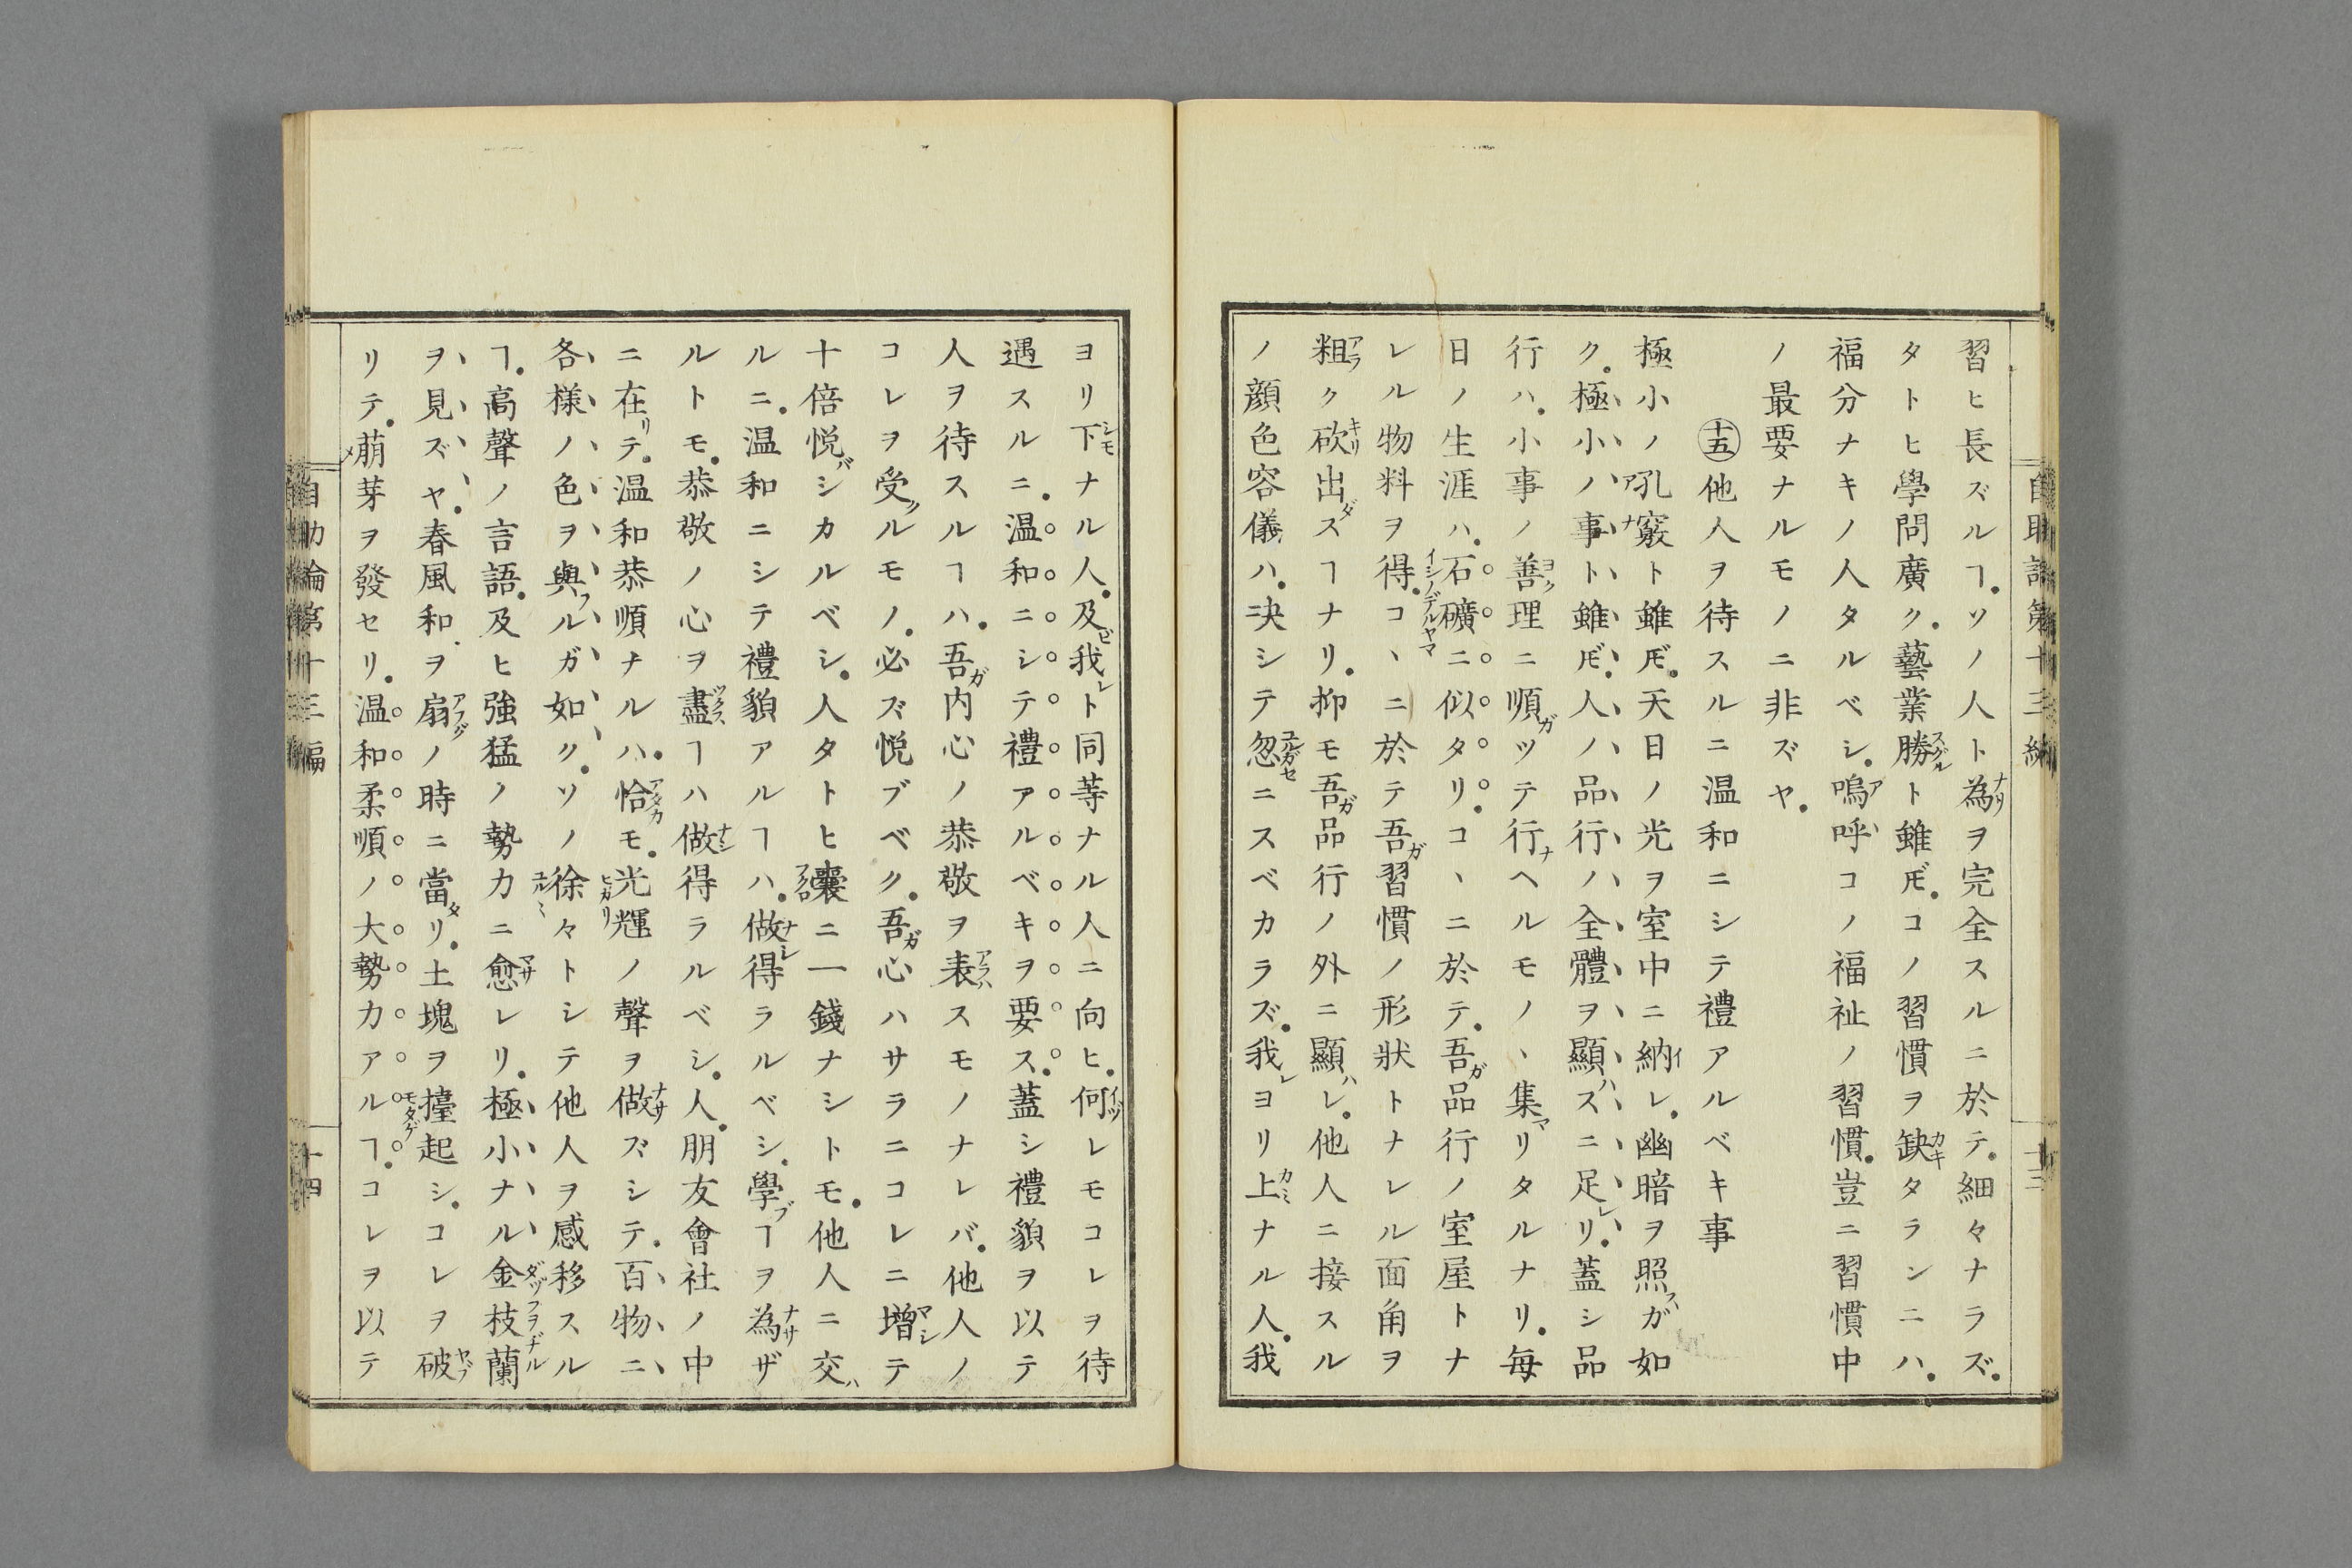 習ヒ長ズルヿ。ソノ人ト為ヲ完全スルニ於テ。細々ナラズ。
タトヒ學問廣ク。藝業勝ト雖𪜈。コノ習慣ヲ缺タランニハ。
福分ナキノ人タルベシ。嗚呼コノ福祉ノ習慣。豈ニ習慣中
ノ最要ナルモノニ非ズヤ。
十五他人ヲ待スルニ温和ニシテ禮アルベキ事
極小ノ孔竅ト雖𪜈。天日ノ光ヲ室中ニ納レ。幽暗ヲ照スガ如
ク。極小ノ事ト雖𪜈。人ノ品行ノ全體ヲ顯ハスニ足レリ。蓋シ品
行ハ。小事ノ善ク理ニ順ガツテ行ナヘルモノヽ集マリタルナリ。毎
日ノ生涯ハ。石礦ニ似タリ。コヽニ於テ。吾ガ品行ノ室屋トナ
レル物料ヲ得。コヽニ於テ吾ガ習慣ノ形狀トナレル面角ヲ
粗ク砍出ダスヿナリ。抑モ吾ガ品行ノ外ニ顯ハレ。他人ニ接スル
ノ顔色容儀ハ。決シテ忽ニスベカラズ。我レヨリ上ナル人。我
ヨリ下ナル人。及ビ我レト同等ナル人ニ向ヒ。何レモコレヲ待
遇スルニ。温和ニシテ禮アルベキヲ要ス。蓋シ禮貌ヲ以テ
人ヲ待スルヿハ。吾ガ内心ノ恭敬ヲ表スモノナレバ。他人ノ
コレヲ受クルモノ。必ズ悦ブベク。吾ガ心ハサラニコレニ增テ
十倍悦バシカルベシ。人タトヒ囊ニ一錢ナシトモ。他人ニ交ハ
ルニ。温和ニシテ禮貌アルヿハ。做得ラルベシ。學ブヿヲ為ザ
ルトモ。恭敬ノ心ヲ盡ヿハ做得ラルベシ。人。朋友會社ノ中
ニ在リテ。温和恭順ナルハ。恰モ。光輝ノ聲ヲ做ズシテ。百物ニ
各様ノ色ヲ與フルガ如ク。ソノ徐々トシテ他人ヲ感移スル
ヿ。高聲ノ言語。及ヒ強猛ノ勢力ニ愈レリ。極小ナル金枝蘭
ヲ見ズヤ。春風和ヲ扇ノ時ニ當タリ。土塊ヲ擡起シ。コレヲ破
リテ。萠芽ヲ發セリ。温和柔順ノ大勢力アルヿ。コレヲ以テ
自助論第十三編
十三
自助論第十三編
十四